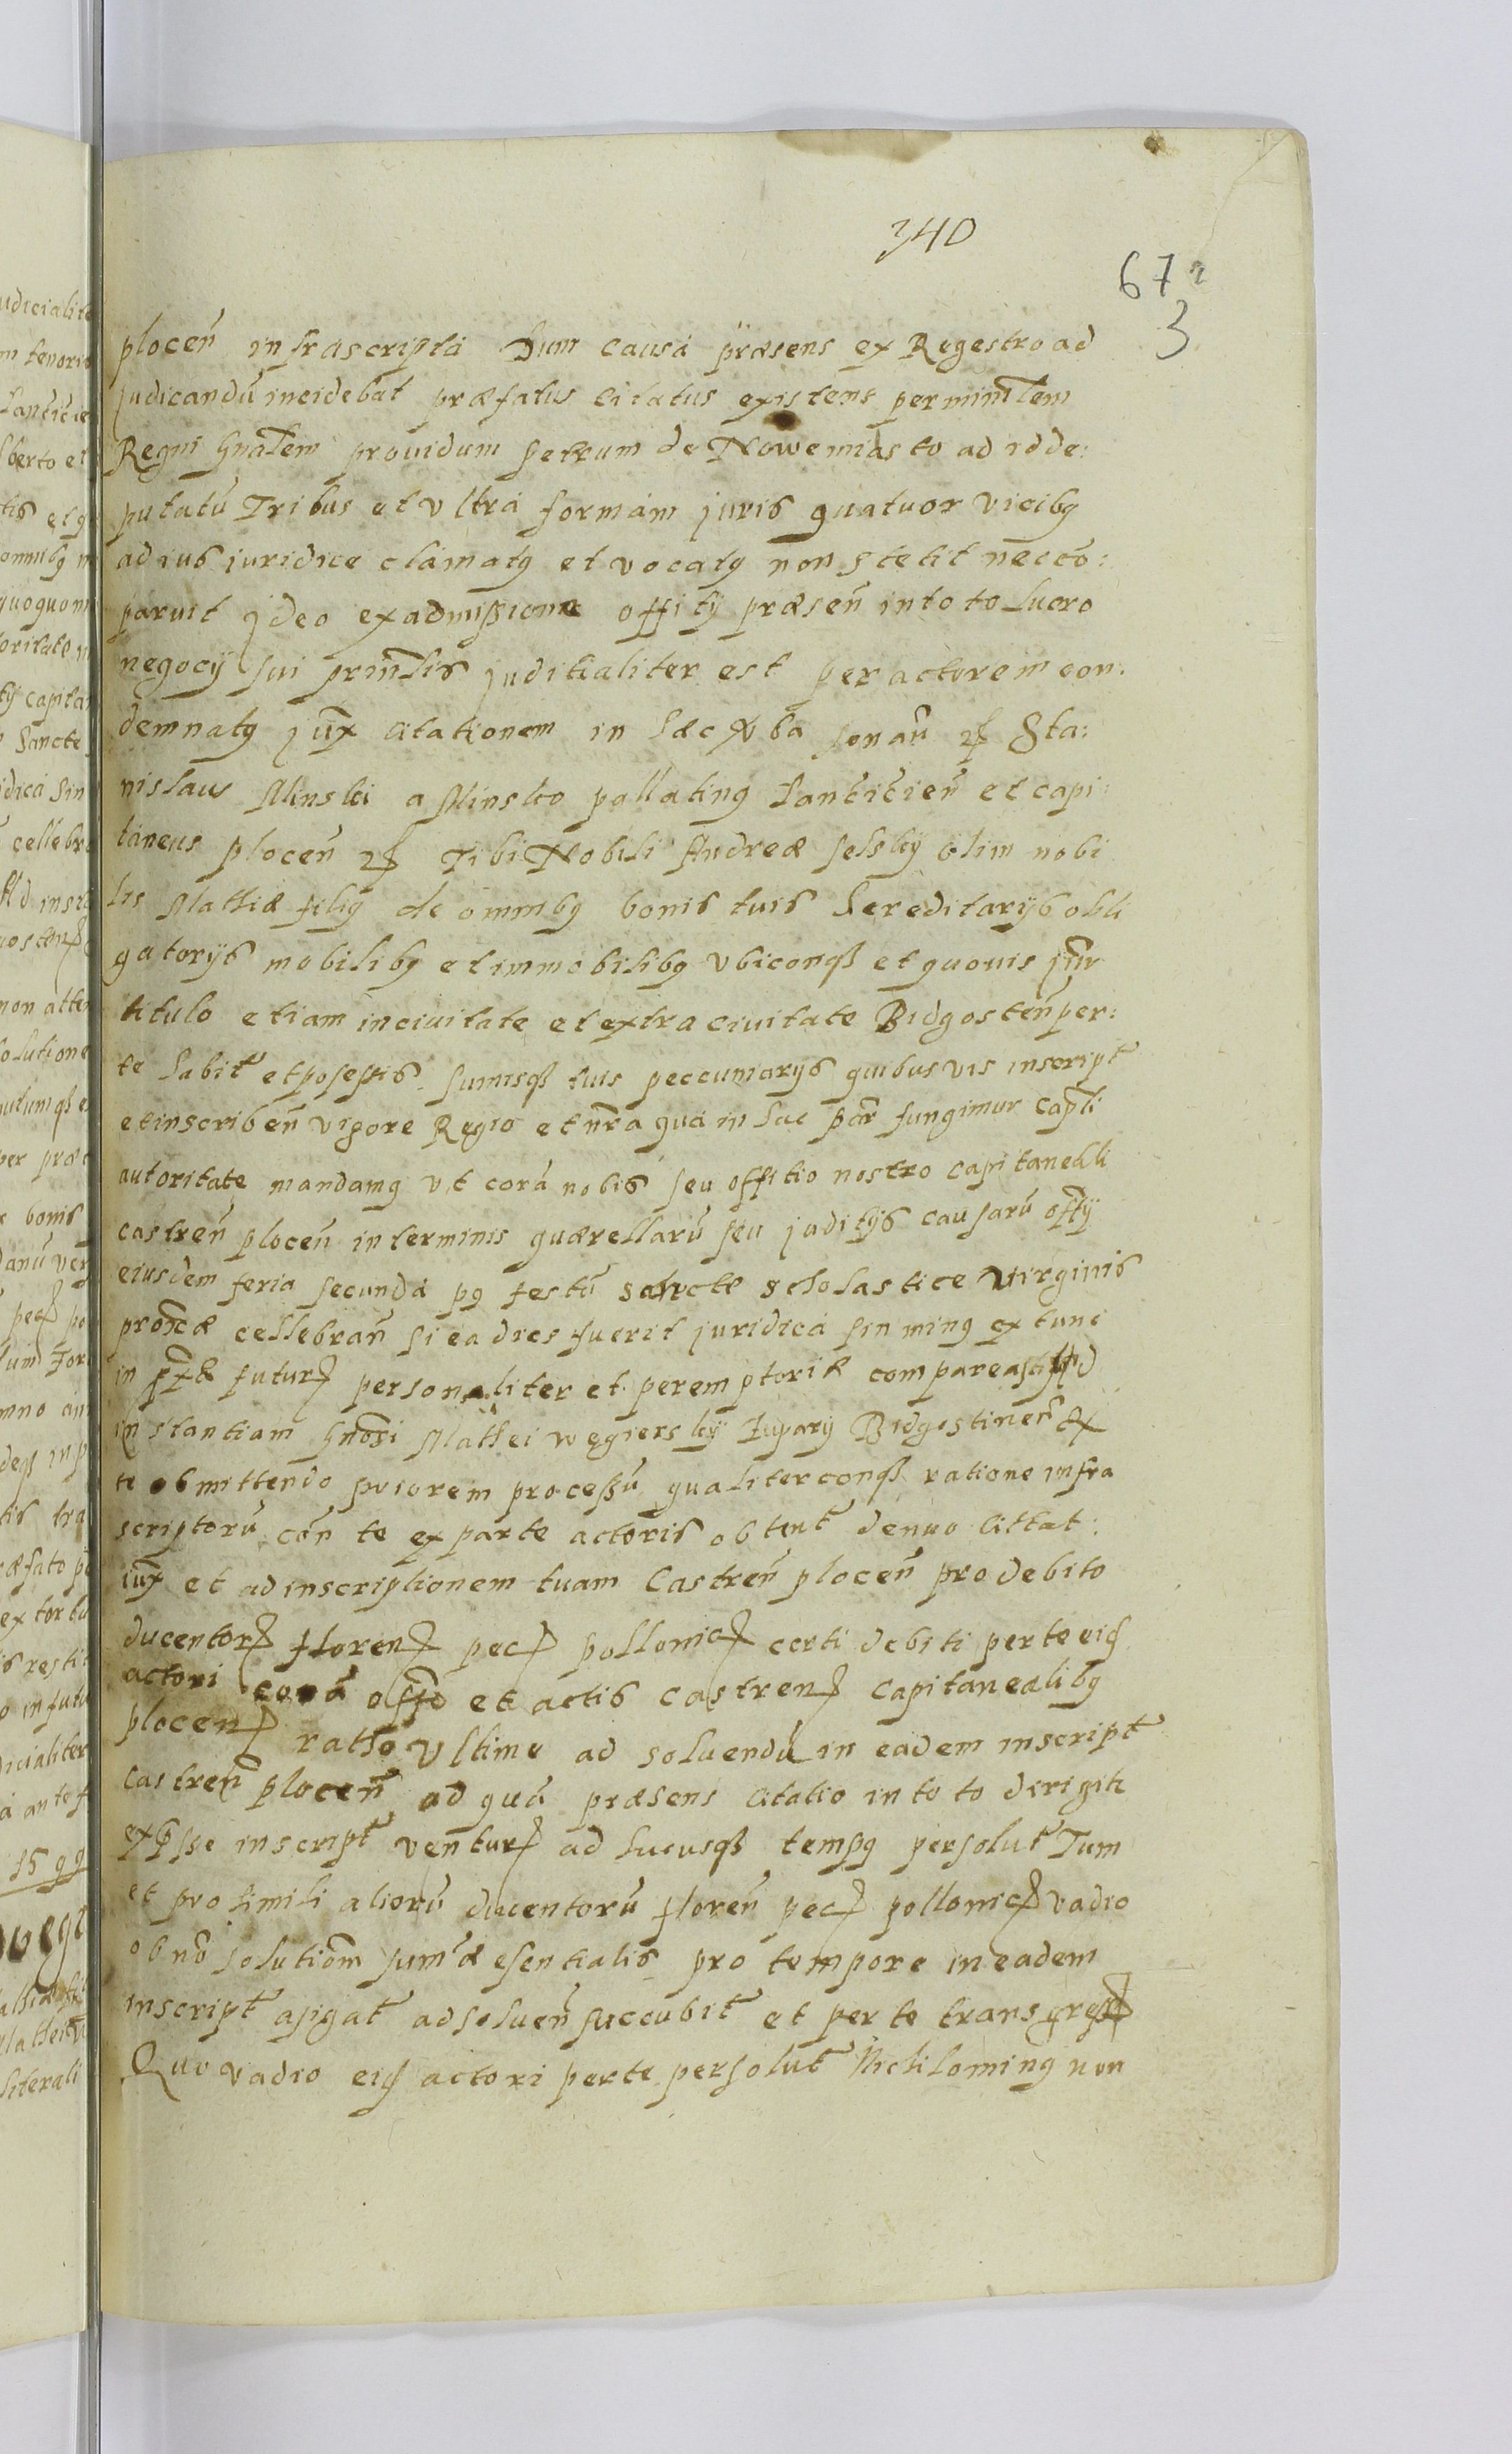 340
67
3
plocen̄ infrascripta Dum causa præsens ex Regestro ad
judicandū incidebat præfatus citatus existens per minrlem
Regni gnalem prouidum petrum de Nowemiasto ad id de:
putatū Tribus et vltra formam juris quatuor vicibꝯ
ad ius iuridice clamatꝯ et vocatꝯ non stetit nec cō:
paruit jdeo ex admissione offitÿ præsen̄ in toto lucro
negocÿ sui prinlis juditialiter est per actorem con:
demnatꝯ juxͣ citationem in hæc vba sonan̄ Sta:
nislaus Minski a Minsko pallatinꝯ Lancicien̄ et capi:
taneus plocen̄ Tibi Nobili Andreæ olim nobi
lis Mathiæ filiꝯ de omnibꝯ bonis tuis hereditarÿs obli
gatorÿs mobilibꝯ et immobilibꝯ vbiconqꝫ et quouis jur
titulo etiam in ciuitate et extra ciuitate Bidgosten̄ per:
te habit̄ et posessis sumisqꝫ tuis peccuniarÿs quibusvis inscript̄
et inscriben̄ vigore Regio et nra qua in hac par̄ fungimur capli
autoritate mandamꝯ vt corā nobis seu offitio nostro capitaneali
castren̄ plocen̄ in terminis quærellarū seu juditÿs causarū offÿ
eiusdem feria secunda pꝯ festū sancte scholastice virginis
prōxæ cellebran̄ si ea dies fuerit juridica sin minꝯ extunc
in futurꝝ personaliter et peremptorie compareas Ad
instantiam gnosi Mathei węgierskÿ Zuparÿ Bidgostinen̄
te obmittendo priorem processū qualiterconqꝫ ratione infra
scriptorū con̄ te ex parte actoris obtent̄ denuo cittat:
iuxͣ et ad inscriptionem tuam Castren̄ plocen̄ pro debito
ducentorꝝ florenꝝ pecꝝ pollonicꝝ certi debiti per te eid
actori corā offo et actis castrenꝝ capitanealibꝯ
plocenꝝ ratho vltimo ad soluendū in eadem inscript̄
castren̄ plocen̄ ad quā præsens citatio in toto dirigit
expsse inscript̄ venturꝝ ad hucusqꝫ tempꝯ persolut̄ Tum
et pro simili aliorū ducentorū floren̄ pecꝝ pollonicꝝ vadio
ob nō solutiōm sumæ esentialis pro tempore in eadem
inscript̄ asigat̄ ad soluen̄ succubit̄ et per te transgress
Quo vadio eid actori per te persolut̄ Nichilominꝯ non